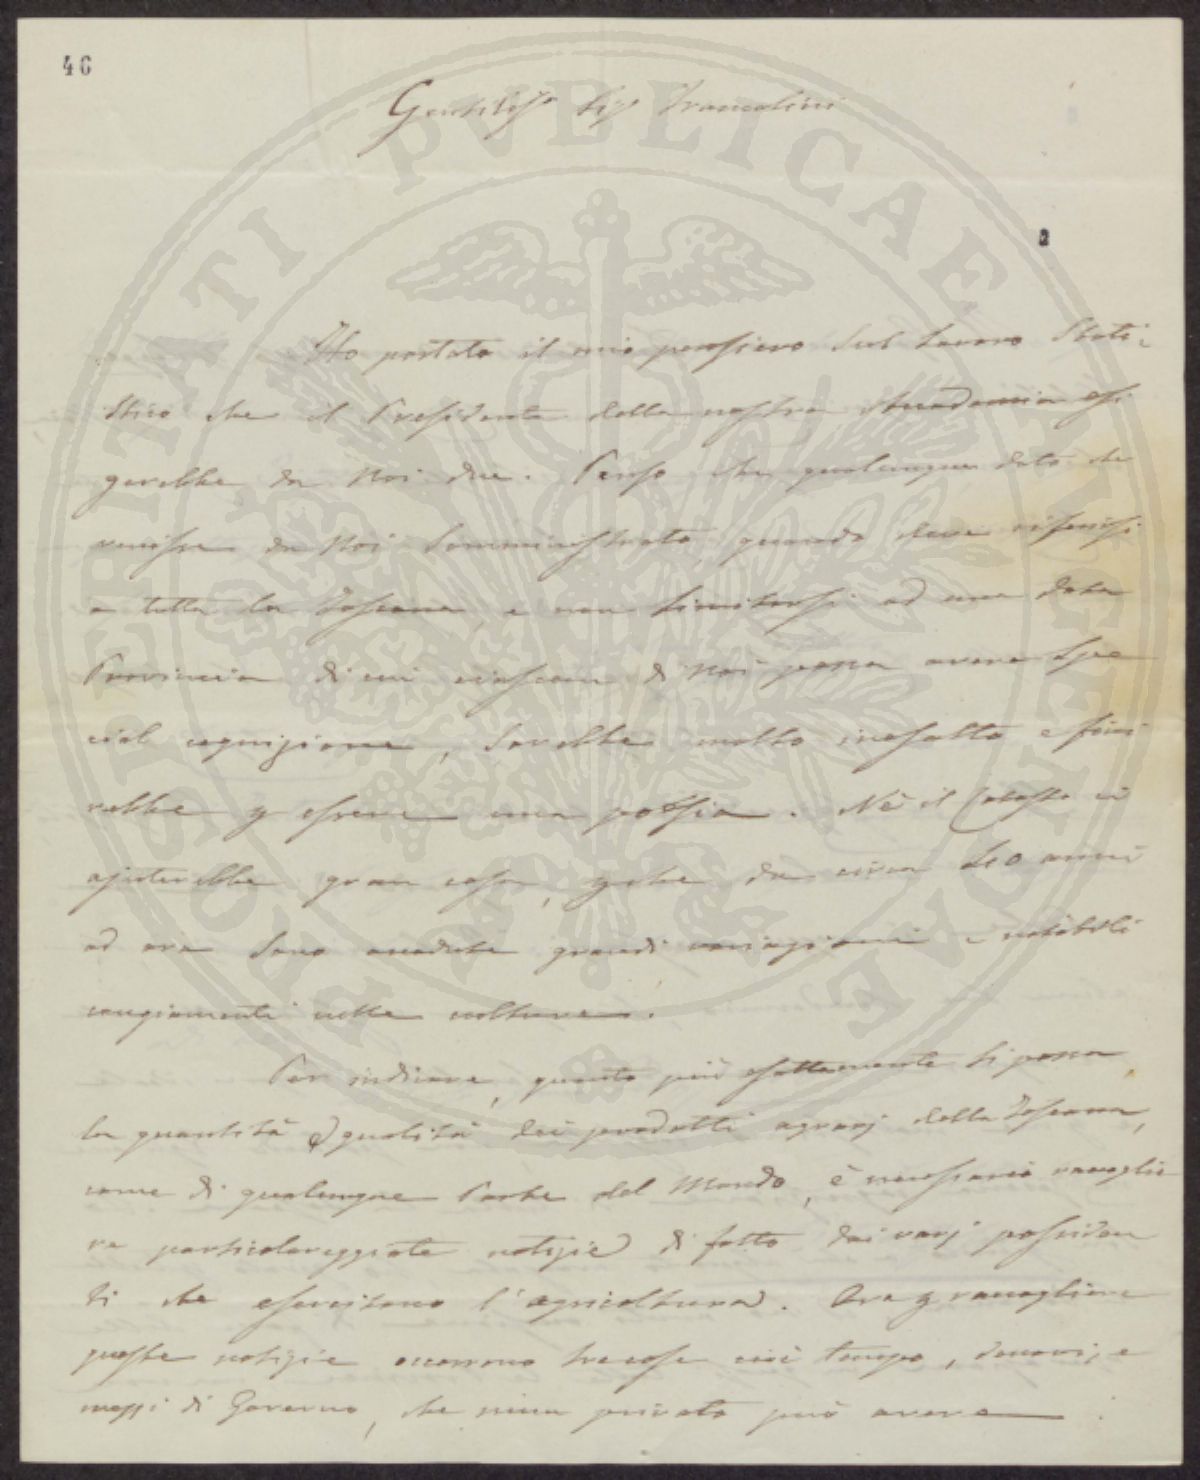 46
Gentiliss.o Sig.r Francolini
2
Ho portato il mio pensiero sul lavoro Stati-
stico che il Presidente della nostra Accademia esi
gerebbe da Noi due. Penso che qualunque dato che
venisse da Noi somministrato, quando deve riferirsi
a tutta la Toscana, e non limitarsi ad una data
Provincia di cui ciascun di Noi possa avere spe
cial cognizione, sarebbe molto inesatto e fini
rebbe p essere una poesia. Nè il Catasto ci
ajuterebbe gran cosa, pche da circa 40 anni
ad ora sono accadute grandi variazioni e notabili
cangiamenti nelle colture.
Per indicare, quanto più esattamente si possa,
la quantità e qualità dei prodotti agrarj della Toscana,
come di qualunque Parte del Mondo, è necessario raccoglie
re particolareggiate notizie di fatto dai varj possiden
ti che esercitano l'agricoltura. Ora p raccogliere
queste notizie occorrono tre cose cioè tempo, denari, e
mezzi di Governo, che niun privato può avere.
PROSPERITATI PVBLICAE AVGENDAE